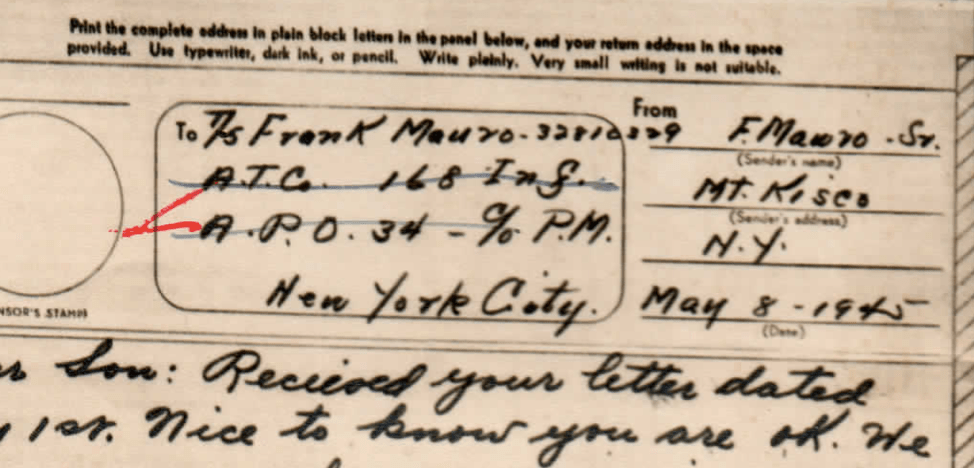 Print the complete address in plain block letters in the panel below, and your return address in the space
provided. Use typewriter, dark ink, or pencil. Write plainly. Very small writing is not suitable.
To T/5 Frank Mauro - 32810329
A.T.Co. 168 Inf.
A.P.O. 34 - c/o P.M.
New York City.
From
F. Mauro - Sr.
(Sender's name)
Mt. Kisco
(Sender's address)
N.Y.
May 8 - 1945
(Date)
NSOR'S STAMP)
r Son: Recieved your letter dated
y 1st. Nice to know you are OK. We